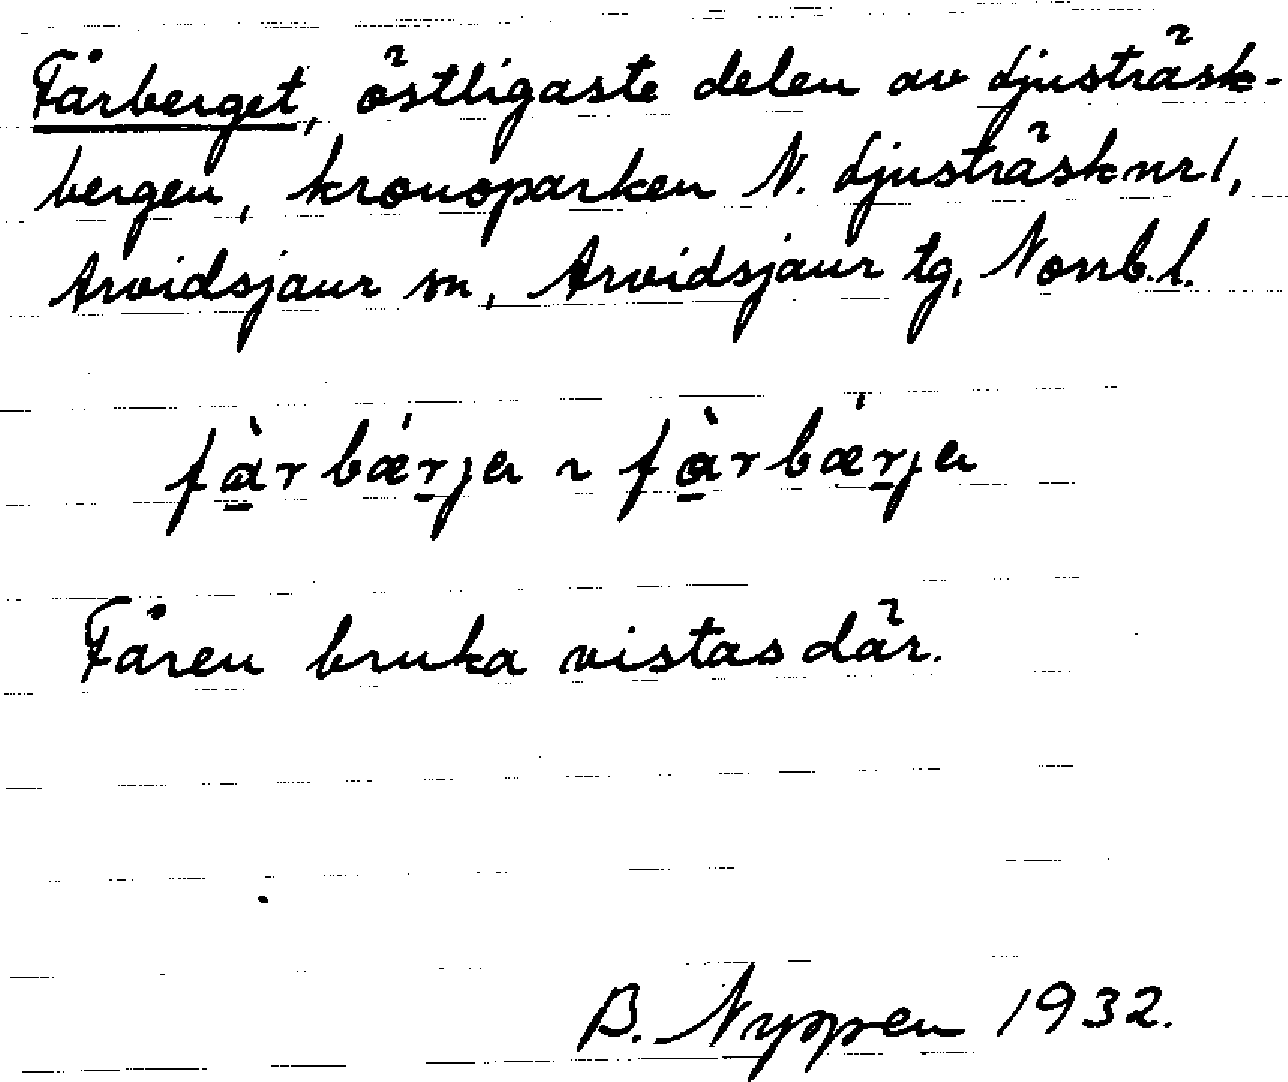 Fårberget, östligaste delen av Ljusträsk-
bergen, kronoparken N. Ljusträsk nr 1,
Arvidsjaur sn, Arvidsjaur tg, Norrb. l.
fàrbǽrja ~ fàrbǽrja
Fåren bruka vistas där.
B. Nyppen 1932.